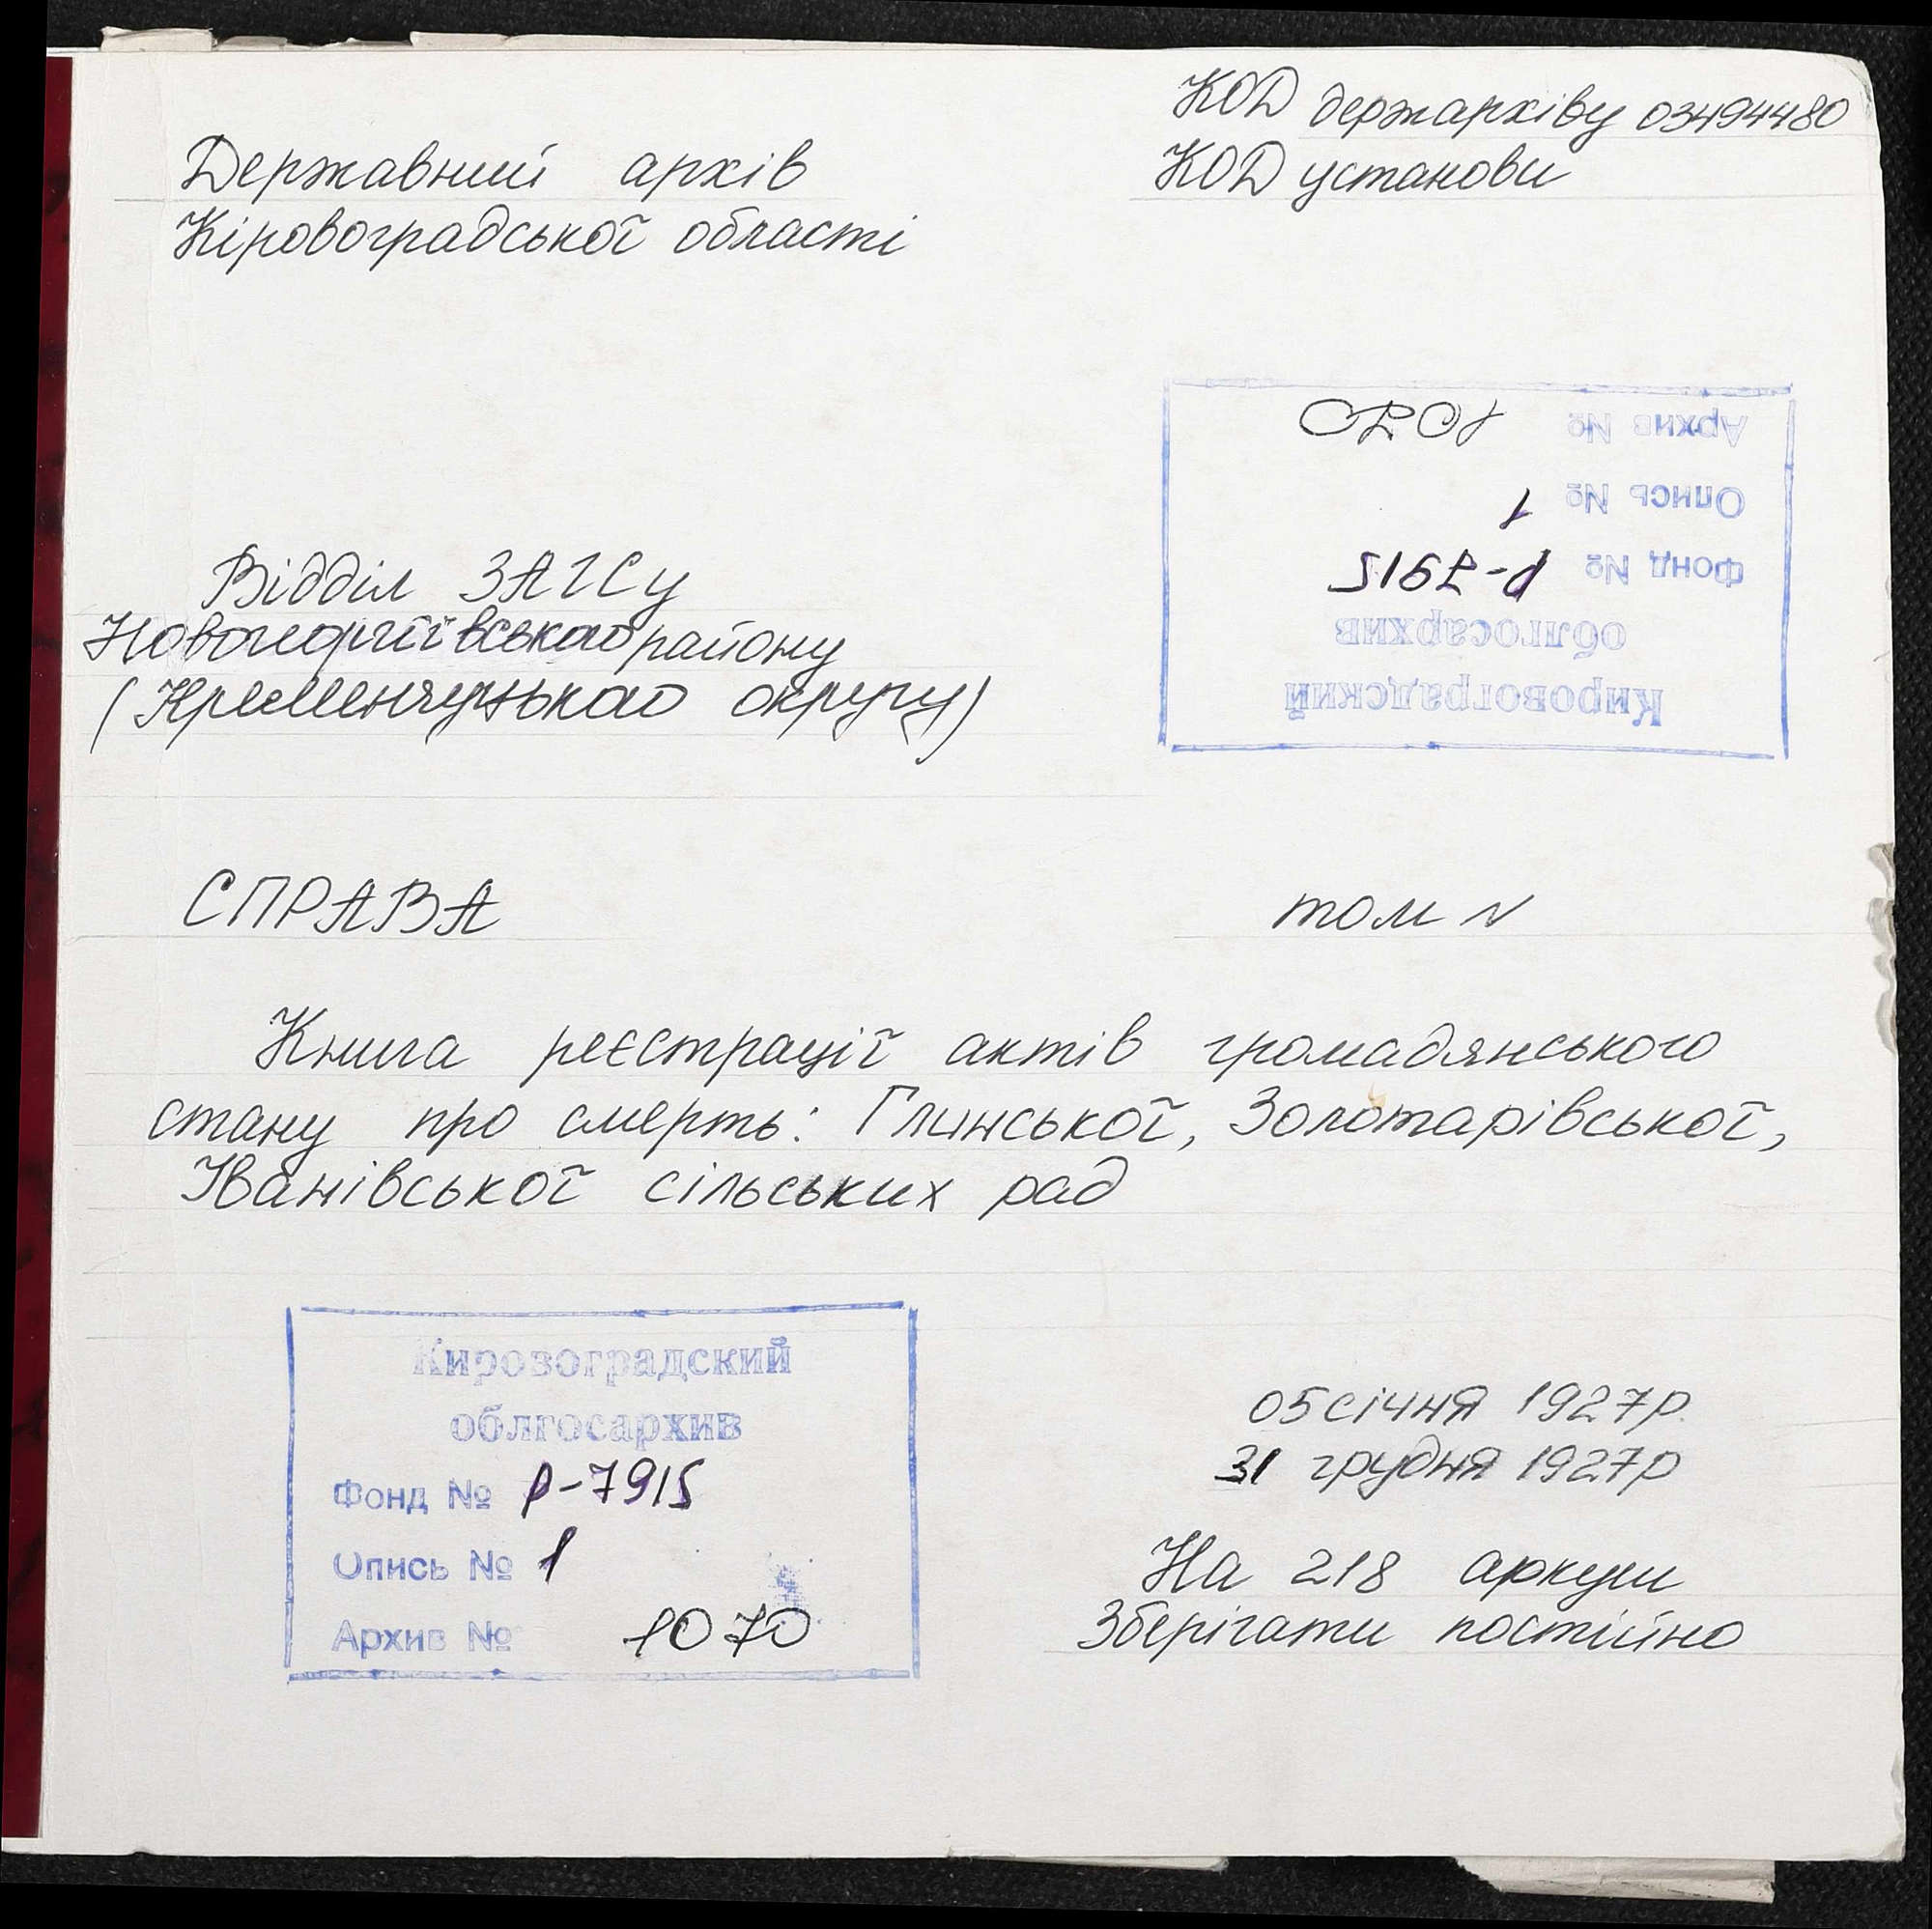 КОД держархіву 03494480
Державний архів
КОД установи
Кіровоградської області
Кировоградский
облгосархив
Фонд № Р-7915
Опись № 1
Архив № 1070
Відділ ЗАГСу
Новогеоргіївського району
(Кременчуцького округу)
СПРАВА
том N
Книга реєстрації актів громадянського
стану про смерть: Глинської, Золотарівської,
Іванівської сільських рад
Кировоградский
облгосархив
Фонд № Р-7915
Опись № 1
Архив № 1070
05 січня 1927р.
31 грудня 1927р
На 218 аркуши
Зберігати постійно